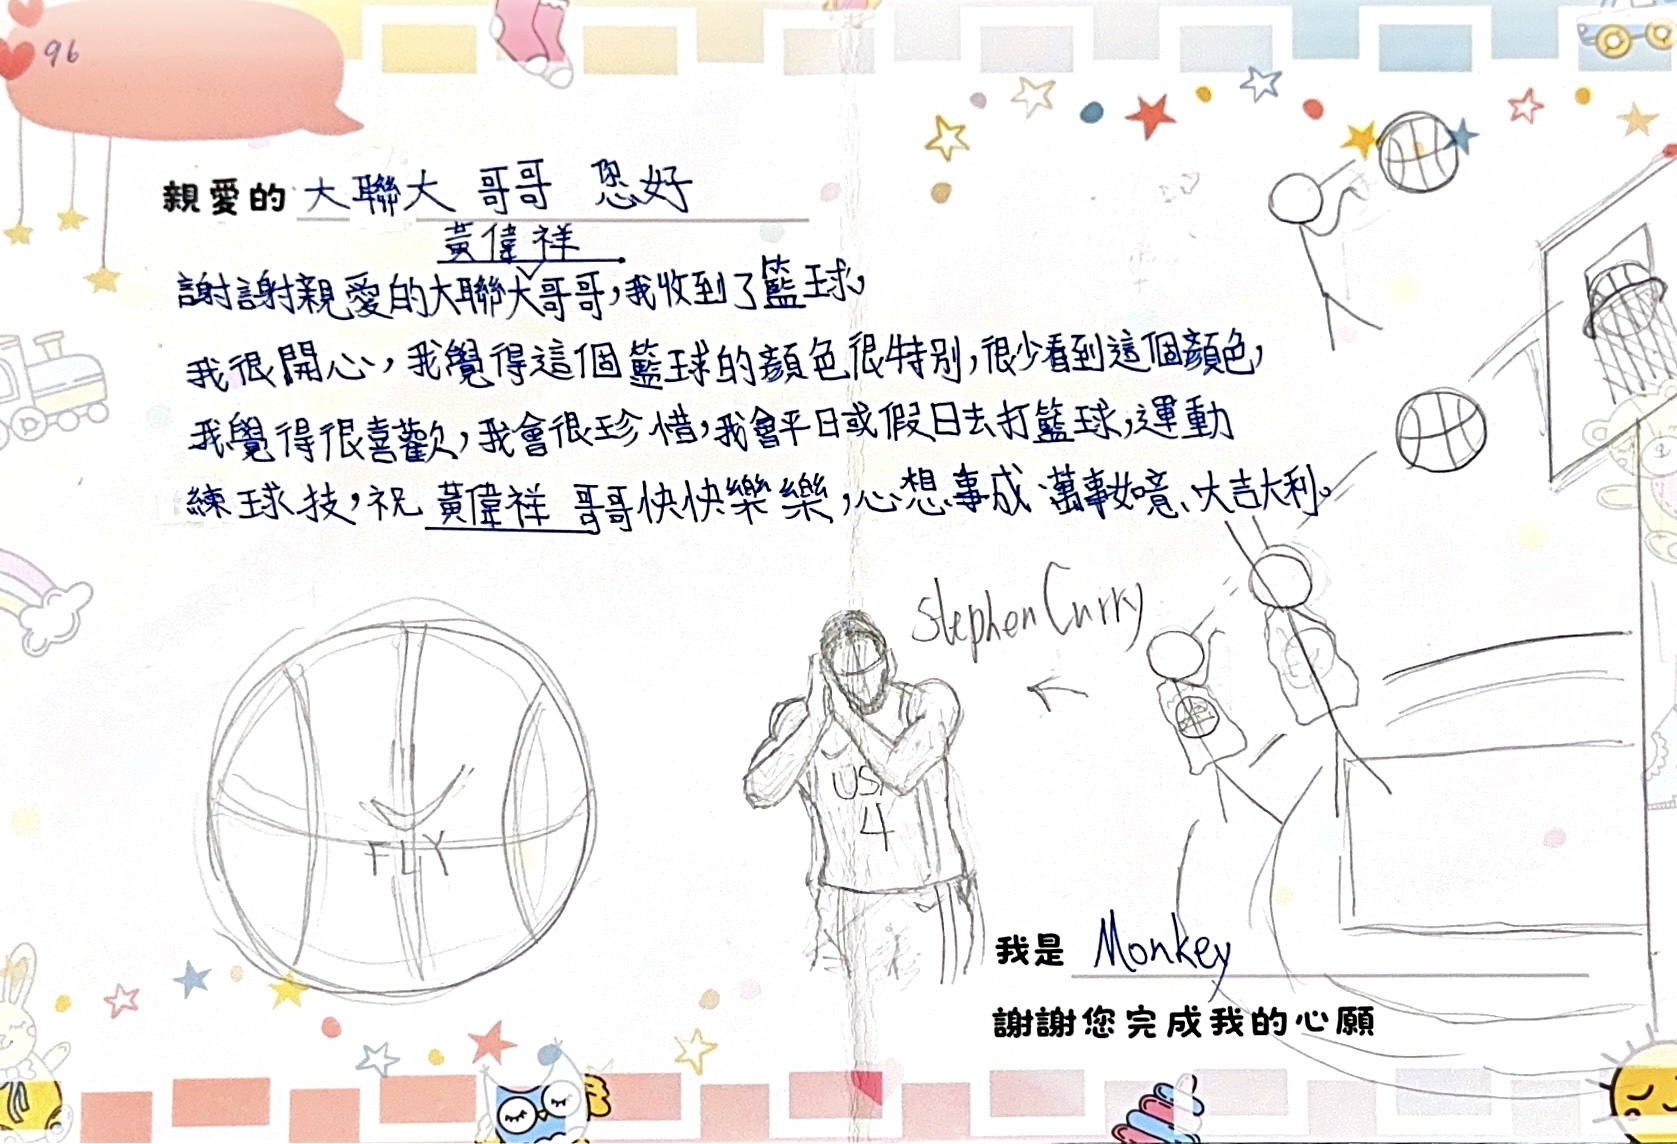 96
親愛的 大聯大 哥哥 您好
黃偉祥
謝謝親愛的大聯大哥哥,我收到了籃球。
我很開心,我覺得這個籃球的顏色很特別,很少看到這個顏色,
我覺得很喜歡,我會很珍惜,我會平日或假日去打籃球,運動
練球技,祝 黃偉祥 哥哥快快樂樂,心想事成、萬事如意、大吉大利。
Stephen Curry
FLY
USA
4
我是 Monkey
謝謝您完成我的心願